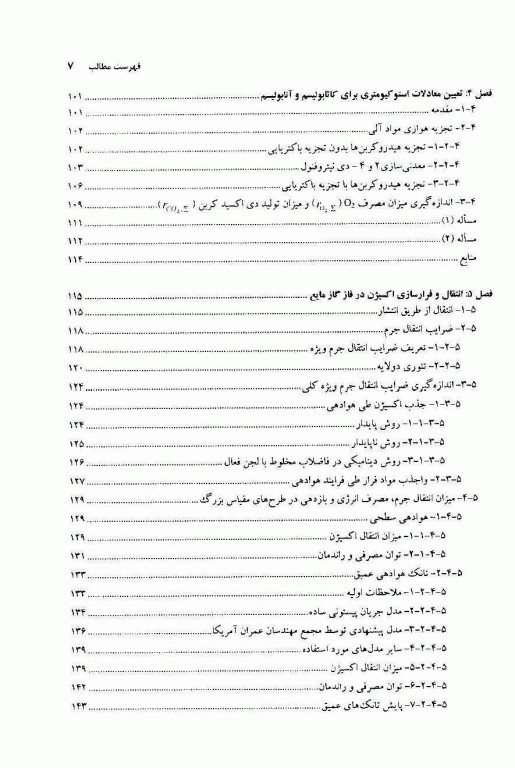 فهرست مطالب ۷
فصل ۴: تعیین معادلات استوکیومتری برای کاتابولیسم و آنابولیسم ........ ۱۰۱
۴-۱- مقدمه ........ ۱۰۱
۴-۲- تجزیه هوازی مواد آلی ........ ۱۰۲
۴-۲-۱- تجزیه هیدروکربن‌ها بدون تجزیه باکتریایی ........ ۱۰۲
۴-۲-۲- معدنی‌سازی ۲ و ۴ - دی نیتروفنول ........ ۱۰۳
۴-۲-۳- تجزیه هیدروکربن‌ها با تجزیه باکتریایی ........ ۱۰۶
۴-۳- اندازه‌گیری میزان مصرف O₂ (r_{O₂,Σ}) و میزان تولید دی اکسید کربن (r_{CO₂,Σ}) ........ ۱۰۹
مسأله (۱) ........ ۱۱۱
مسأله (۲) ........ ۱۱۲
منابع ........ ۱۱۴
فصل ۵: انتقال و فرارسازی اکسیژن در فاز گاز مایع ........ ۱۱۵
۵-۱- انتقال از طریق انتشار ........ ۱۱۵
۵-۲- ضرایب انتقال جرم ........ ۱۱۸
۵-۲-۱- تعریف ضرایب انتقال جرم ویژه ........ ۱۱۸
۵-۲-۲- تئوری دولایه ........ ۱۲۰
۵-۳- اندازه‌گیری ضرایب انتقال جرم ویژه کلی ........ ۱۲۴
۵-۳-۱- جذب اکسیژن طی هوادهی ........ ۱۲۴
۵-۳-۱-۱- روش پایدار ........ ۱۲۴
۵-۳-۱-۲- روش ناپایدار ........ ۱۲۵
۵-۳-۱-۳- روش دینامیکی در فاضلاب مخلوط با لجن فعال ........ ۱۲۶
۵-۳-۲- واجذب مواد فرار طی فرایند هوادهی ........ ۱۲۷
۵-۴- میزان انتقال جرم، مصرف انرژی و بازدهی در طرح‌های مقیاس بزرگ ........ ۱۲۹
۵-۴-۱- هوادهی سطحی ........ ۱۲۹
۵-۴-۱-۱- میزان انتقال اکسیژن ........ ۱۲۹
۵-۴-۱-۲- توان مصرفی و راندمان ........ ۱۳۱
۵-۴-۲- تانک هوادهی عمیق ........ ۱۳۳
۵-۴-۲-۱- ملاحظات اولیه ........ ۱۳۳
۵-۴-۲-۲- مدل جریان پیستونی ساده ........ ۱۳۴
۵-۴-۲-۳- مدل پیشنهادی توسط مجمع مهندسان عمران آمریکا ........ ۱۳۶
۵-۴-۲-۴- سایر مدل‌های مورد استفاده ........ ۱۳۹
۵-۴-۲-۵- میزان انتقال اکسیژن ........ ۱۳۹
۵-۴-۲-۶- توان مصرفی و راندمان ........ ۱۴۲
۵-۴-۲-۷- پایش تانک‌های عمیق ........ ۱۴۳